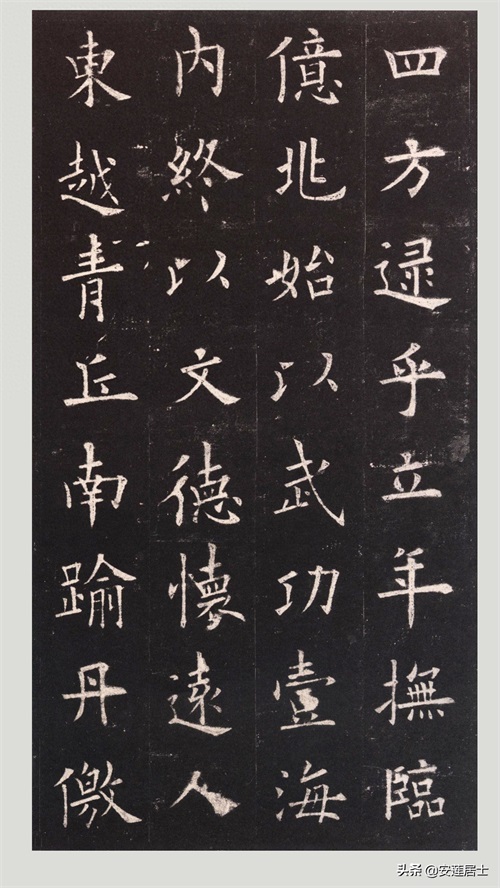 四方逮乎立年撫臨
億兆始以武功壹海
内終以文德懷遠人
東越青丘南踰丹儌
头条 @安莲居士